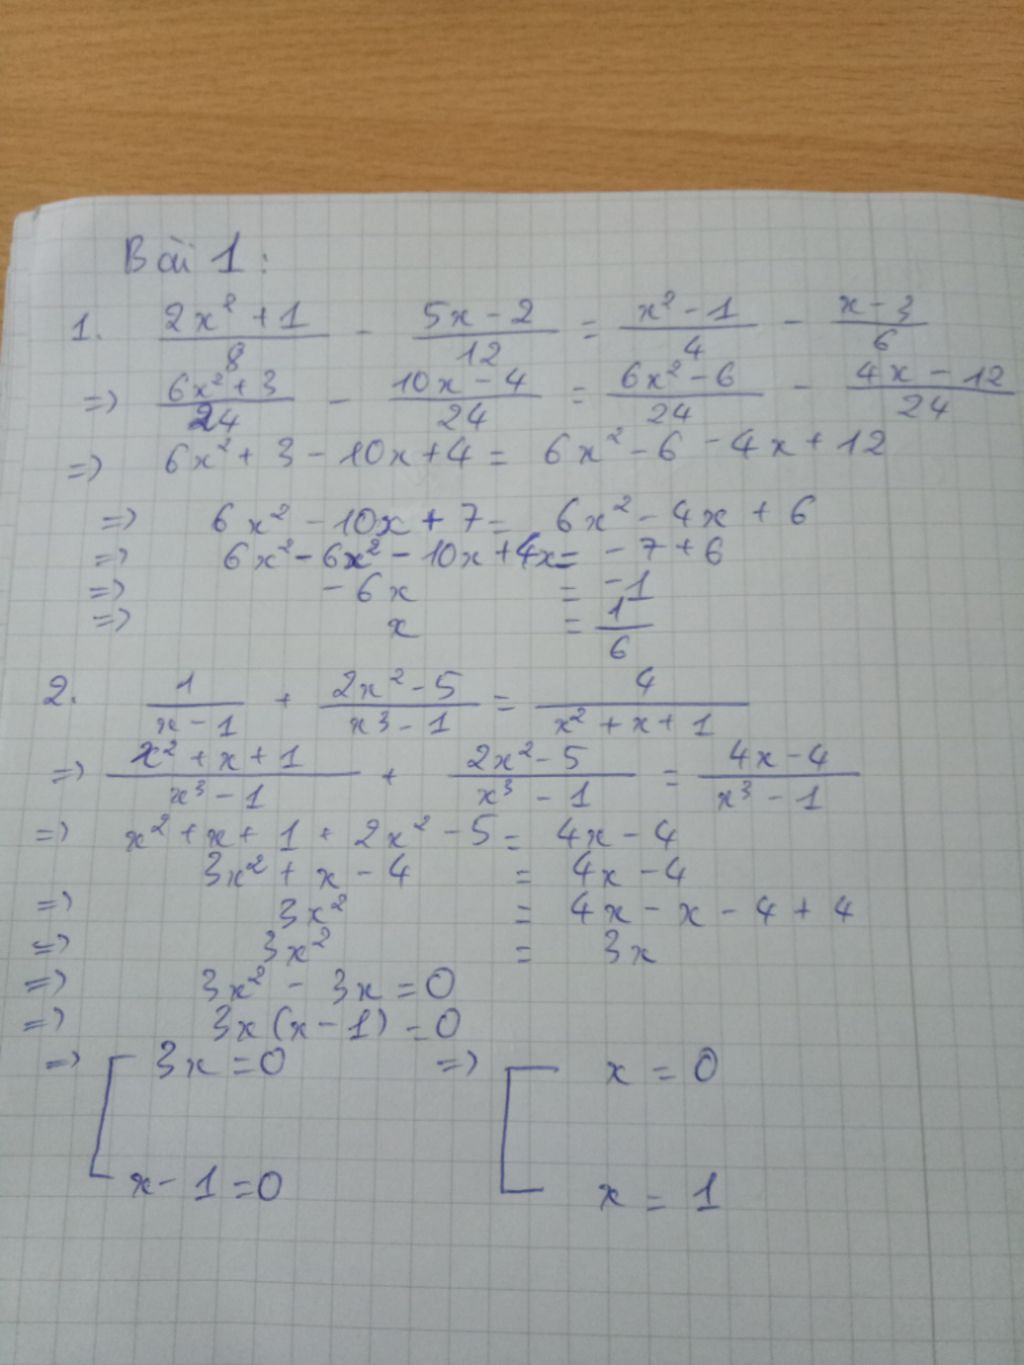 Bài 1:
1. (2x² + 1)/8 - (5x - 2)/12 = (x² - 1)/4 - (x - 3)/6
=> (6x² + 3)/24 - (10x - 4)/24 = (6x² - 6)/24 - (4x - 12)/24
=> 6x² + 3 - 10x + 4 = 6x² - 6 - 4x + 12
=> 6x² - 10x + 7 = 6x² - 4x + 6
=> 6x² - 6x² - 10x + 4x = - 7 + 6
=> - 6x = -1
=> x = 1/6
2. 1/(x - 1) + (2x² - 5)/(x³ - 1) = 4/(x² + x + 1)
=> (x² + x + 1)/(x³ - 1) + (2x² - 5)/(x³ - 1) = (4x - 4)/(x³ - 1)
=> x² + x + 1 + 2x² - 5 = 4x - 4
3x² + x - 4 = 4x - 4
=> 3x² = 4x - x - 4 + 4
=> 3x² = 3x
=> 3x² - 3x = 0
=> 3x(x - 1) = 0
=> [ 3x = 0 => [ x = 0
x - 1 = 0 x = 1